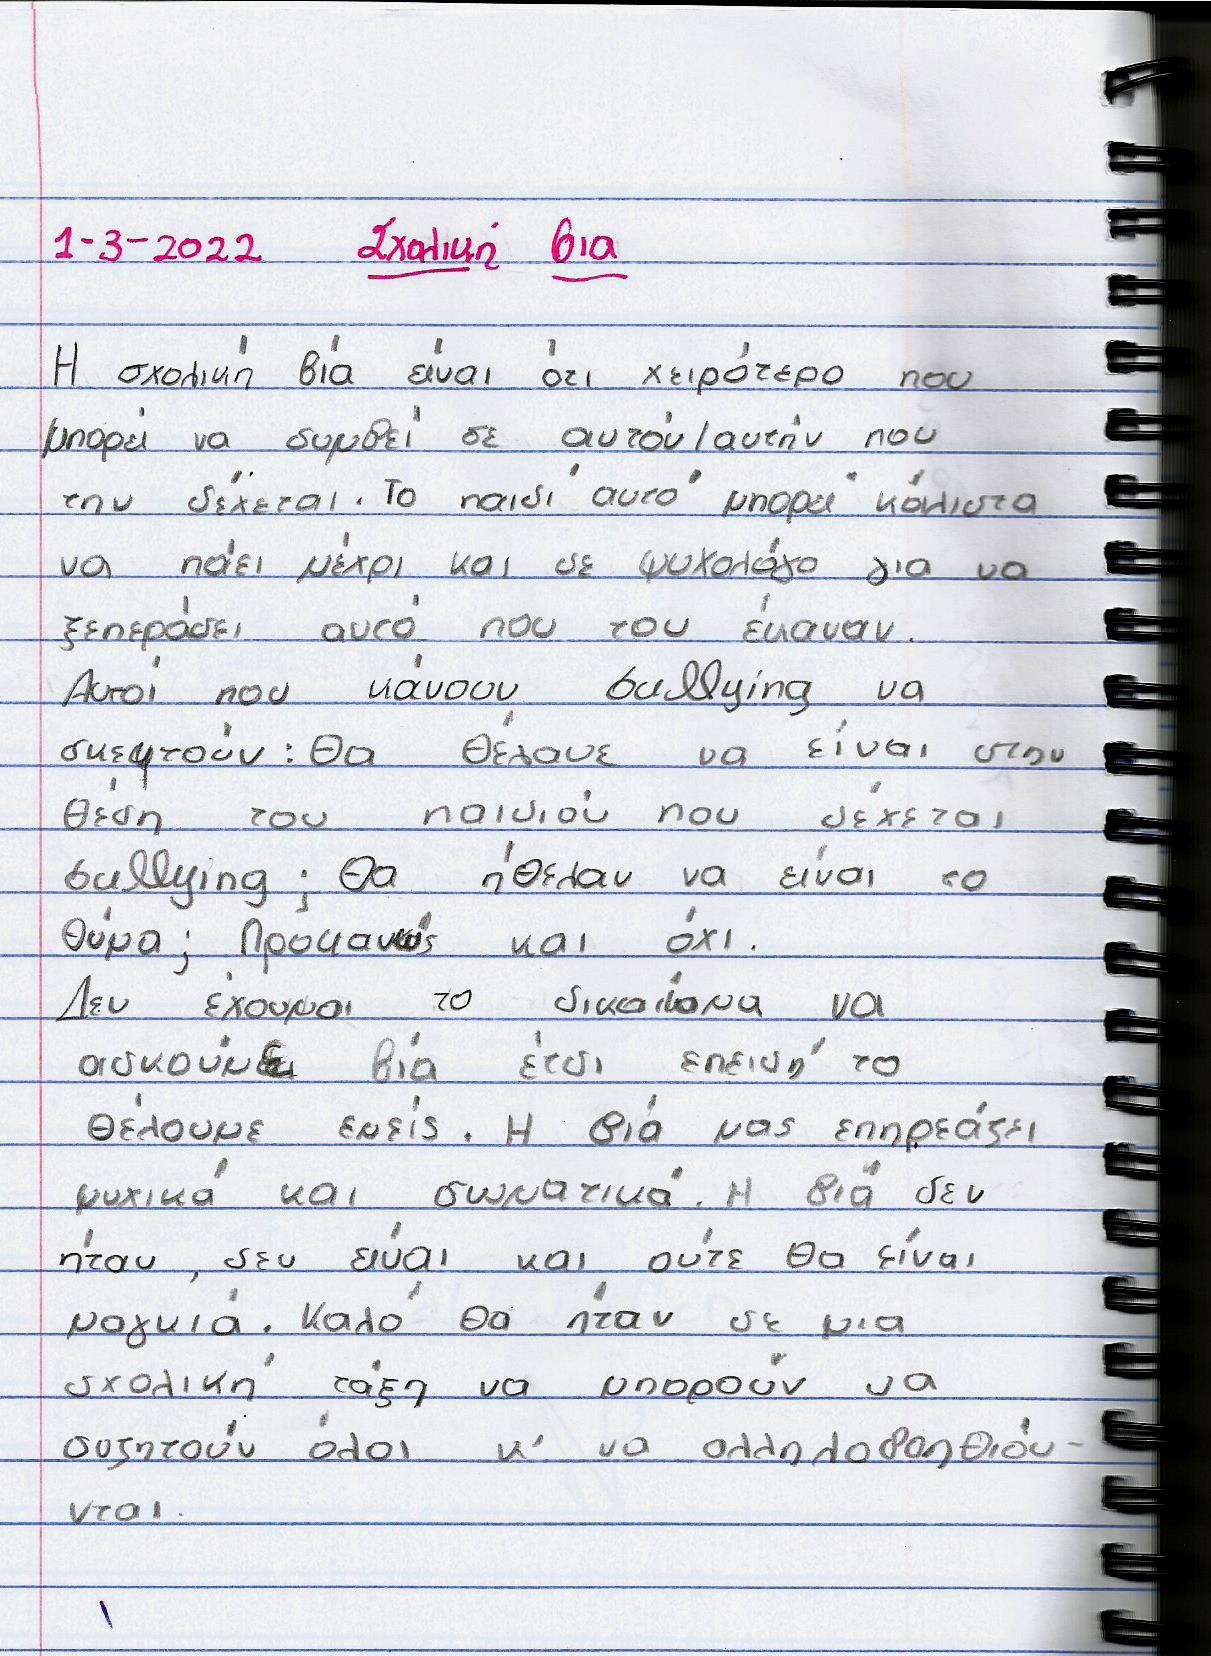 1-3-2022 Σχολική βια
Η σχολική βία είναι ότι χειρότερο που
μπορεί να συμβεί σε αυτόν/αυτήν που
την δέχεται. Το παιδί αυτό μπορεί κάλιστα
να πάει μέχρι και σε ψυχολόγο για να
ξεπεράσει αυτό που του έκαναν.
Αυτοί που κάνουν bullying να
σκεφτούν: Θα θέλανε να είναι στην
θέση του παιδιού που δέχεται
bullying; Θα ήθελαν να είναι το
θύμα; Προκανώς και όχι.
Δεν έχουμαι το δικαίωμα να
ασκούμε βία έτσι επειδή το
θέλουμε εμείς. Η βιά μας επηρεάζει
ψυχικά και σωματικά. Η βιά δεν
ήταν, δεν είναι και ούτε θα είναι
μαγκιά. Καλό θα ήταν σε μια
σχολική τάξη να μπορούν να
συζητούν όλοι κ' να αλληλοβοηθιόυ-
νται.